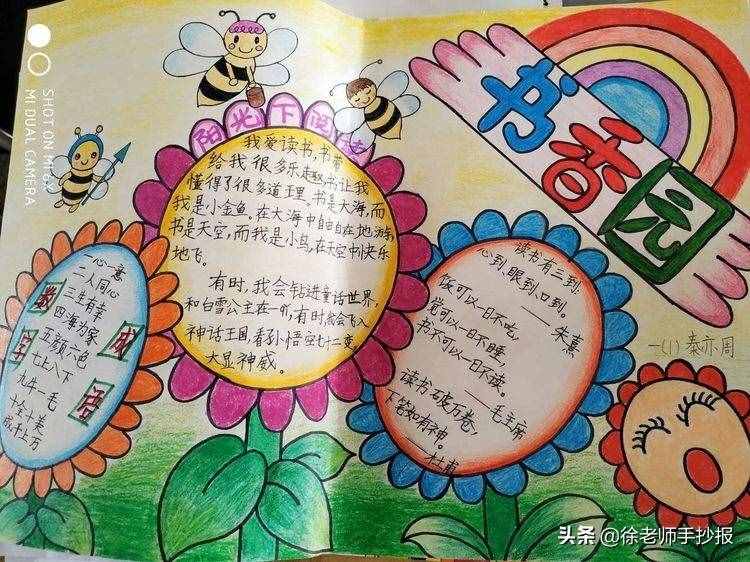 SHOT ON MI 6X
MI DUAL CAMERA
书香园
阳光下阅读
我爱读书,书带
给我很多乐趣,书让我
懂得了很多道王里。书是大海,而
我是小金鱼。在大海中自由自在地游,
书是天空,而我是小鸟,在天空中快乐
地飞。
有时,我会钻进童话世界,
和白雪公主在一听,有时就会飞入
神话王国,看孙悟空七十二变,
大显神威。
数字
成语
一心一意
二人同心
三生有幸
四海为家
五颜六色
七上八下
九牛一毛
十全十美
成千上万
读书有三到:
心到、眼到、口到。
——朱熹
饭可以一日不吃
觉可以一日不睡
书不可以一日不读。
——毛主席
读书破万卷,
下笔如有神。
——杜甫
一(1) 秦亦周
头条 @徐老师手抄报